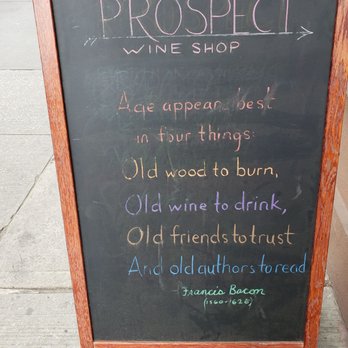 PROSPECT
WINE SHOP
Age appears best
in four things:
Old wood to burn,
Old wine to drink,
Old friends to trust
And old authors to read
- Francis Bacon
(1560-1626)